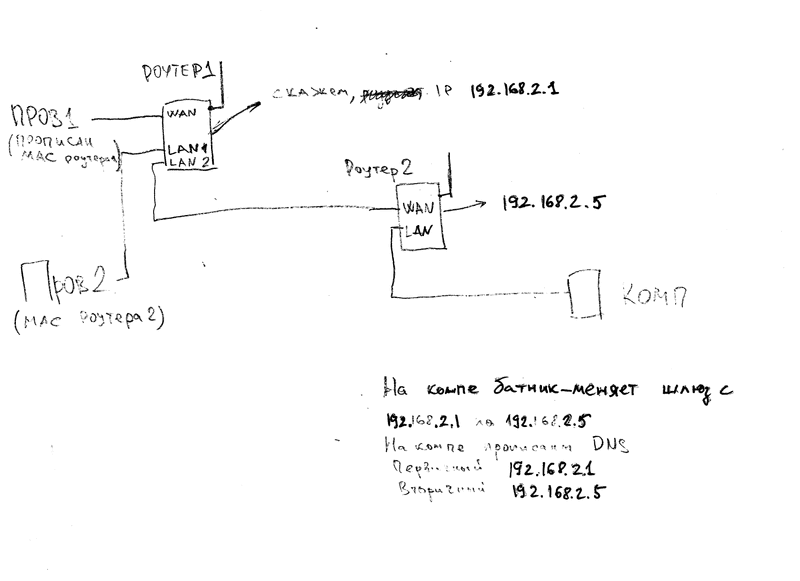 РОУТЕР1
скажем, IP 192.168.2.1
ПРОВ1
(ПРОПИСАЛИ
МАС роутера1)
WAN
LAN1
LAN 2
Роутер2
WAN
LAN
192.168.2.5
Пров2
(МАС Роутера2)
КОМП
На компе батник-меняет шлюз с
192.168.2.1 на 192.168.2.5
На компе прописаны DNS
Первичный 192.168.2.1
Вторичный 192.168.2.5